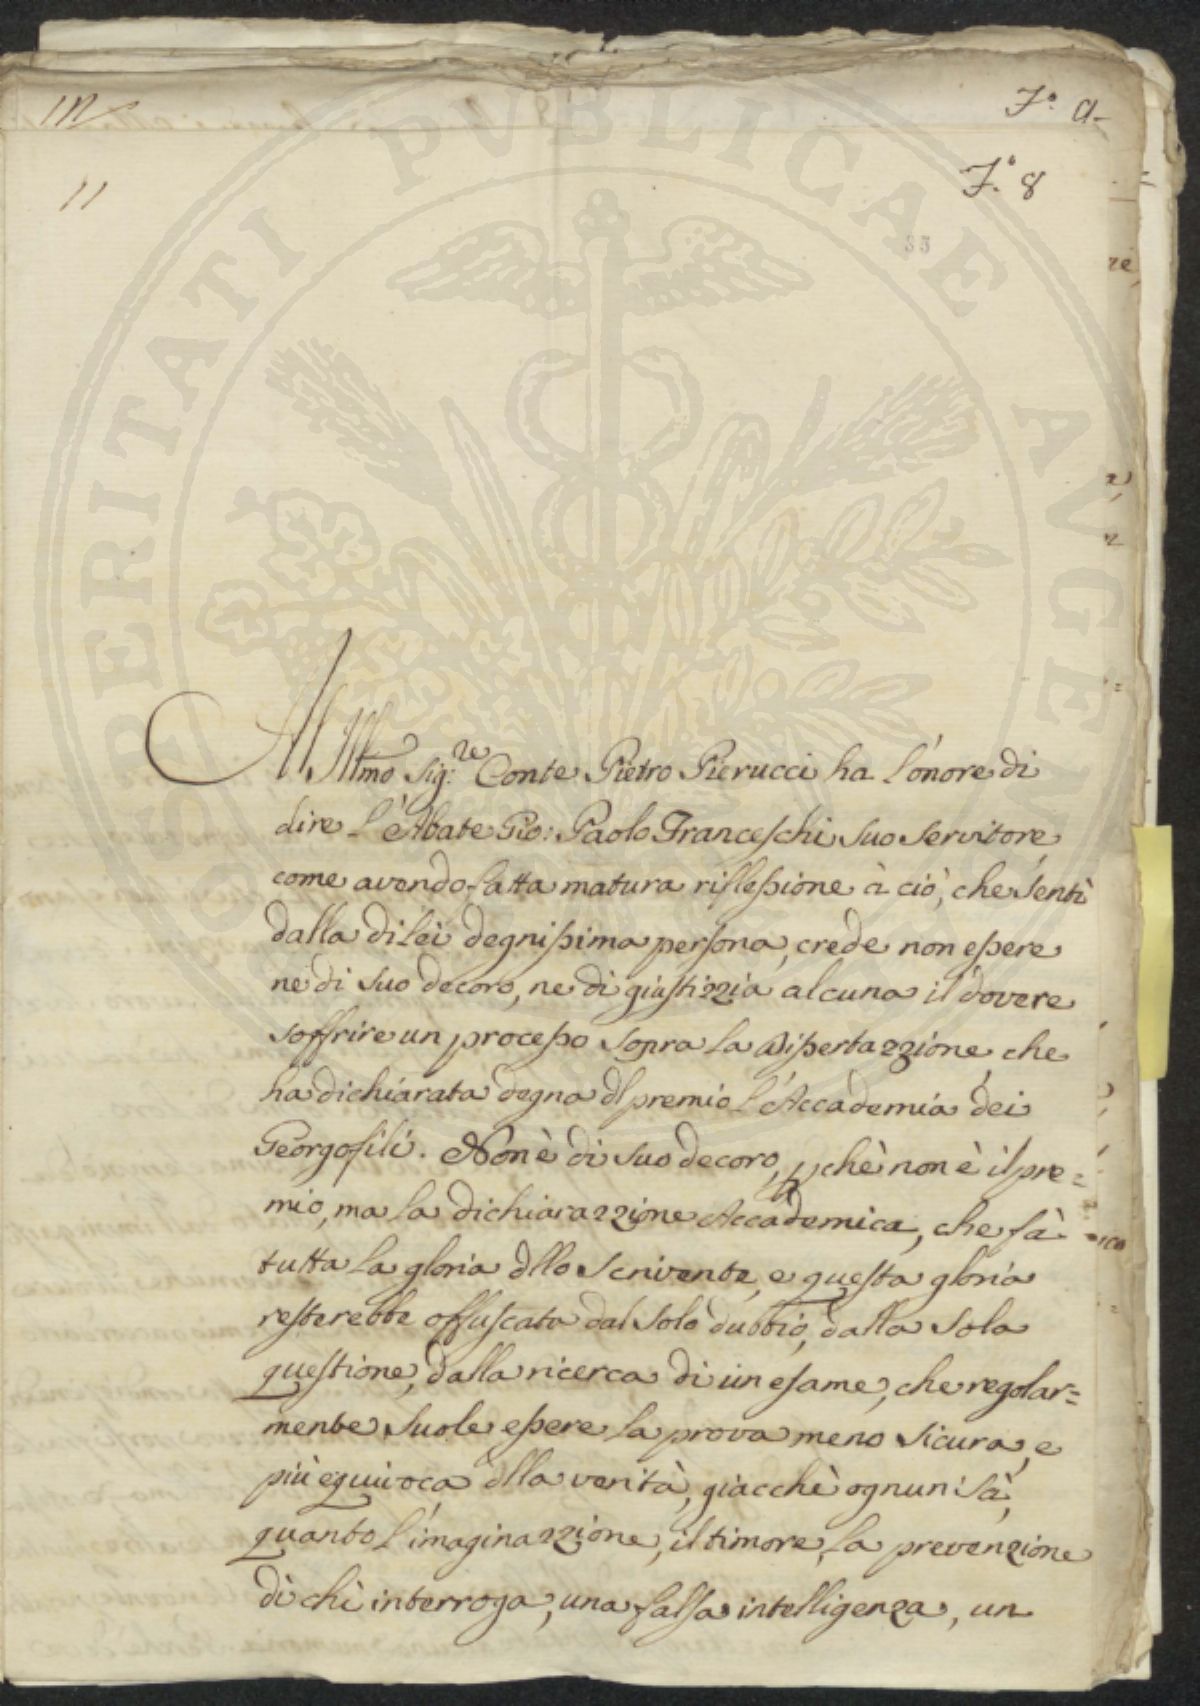 11
F.° 8
35
PROSPERITATI PVBLICAE AVGENDAE
All Illmo Sig:re Conte Pietro Pierucci ha l'onore di
dire l'Abate Gio: Paolo Franceschi suo servitore
come avendo fatta matura riflessione à ciò, che sentì
dalla di lei degnissima persona, crede non essere
ne di suo decoro, ne di giustizzia alcuna il dovere
soffrire un processo sopra la Dissertazzione, che
ha dichiarata degna dl premio l'Accademia dei
Georgofili. Non è di suo decoro, pchè non è il pre=
mio, ma la dichiarazzione Accademica, che fà
tutta la gloria dllo Scrivente, e questa gloria
resterebbe offuscata dal solo dubbio, dalla sola
questione, dalla ricerca di un esame, che regolar=
mente suole essere la prova meno sicura, e
più equivoca dlla verità, giacchè ognun sà,
quanto l'imaginazzione, il timore, la prevenzione
di chi interroga, una falsa intelligenza, un